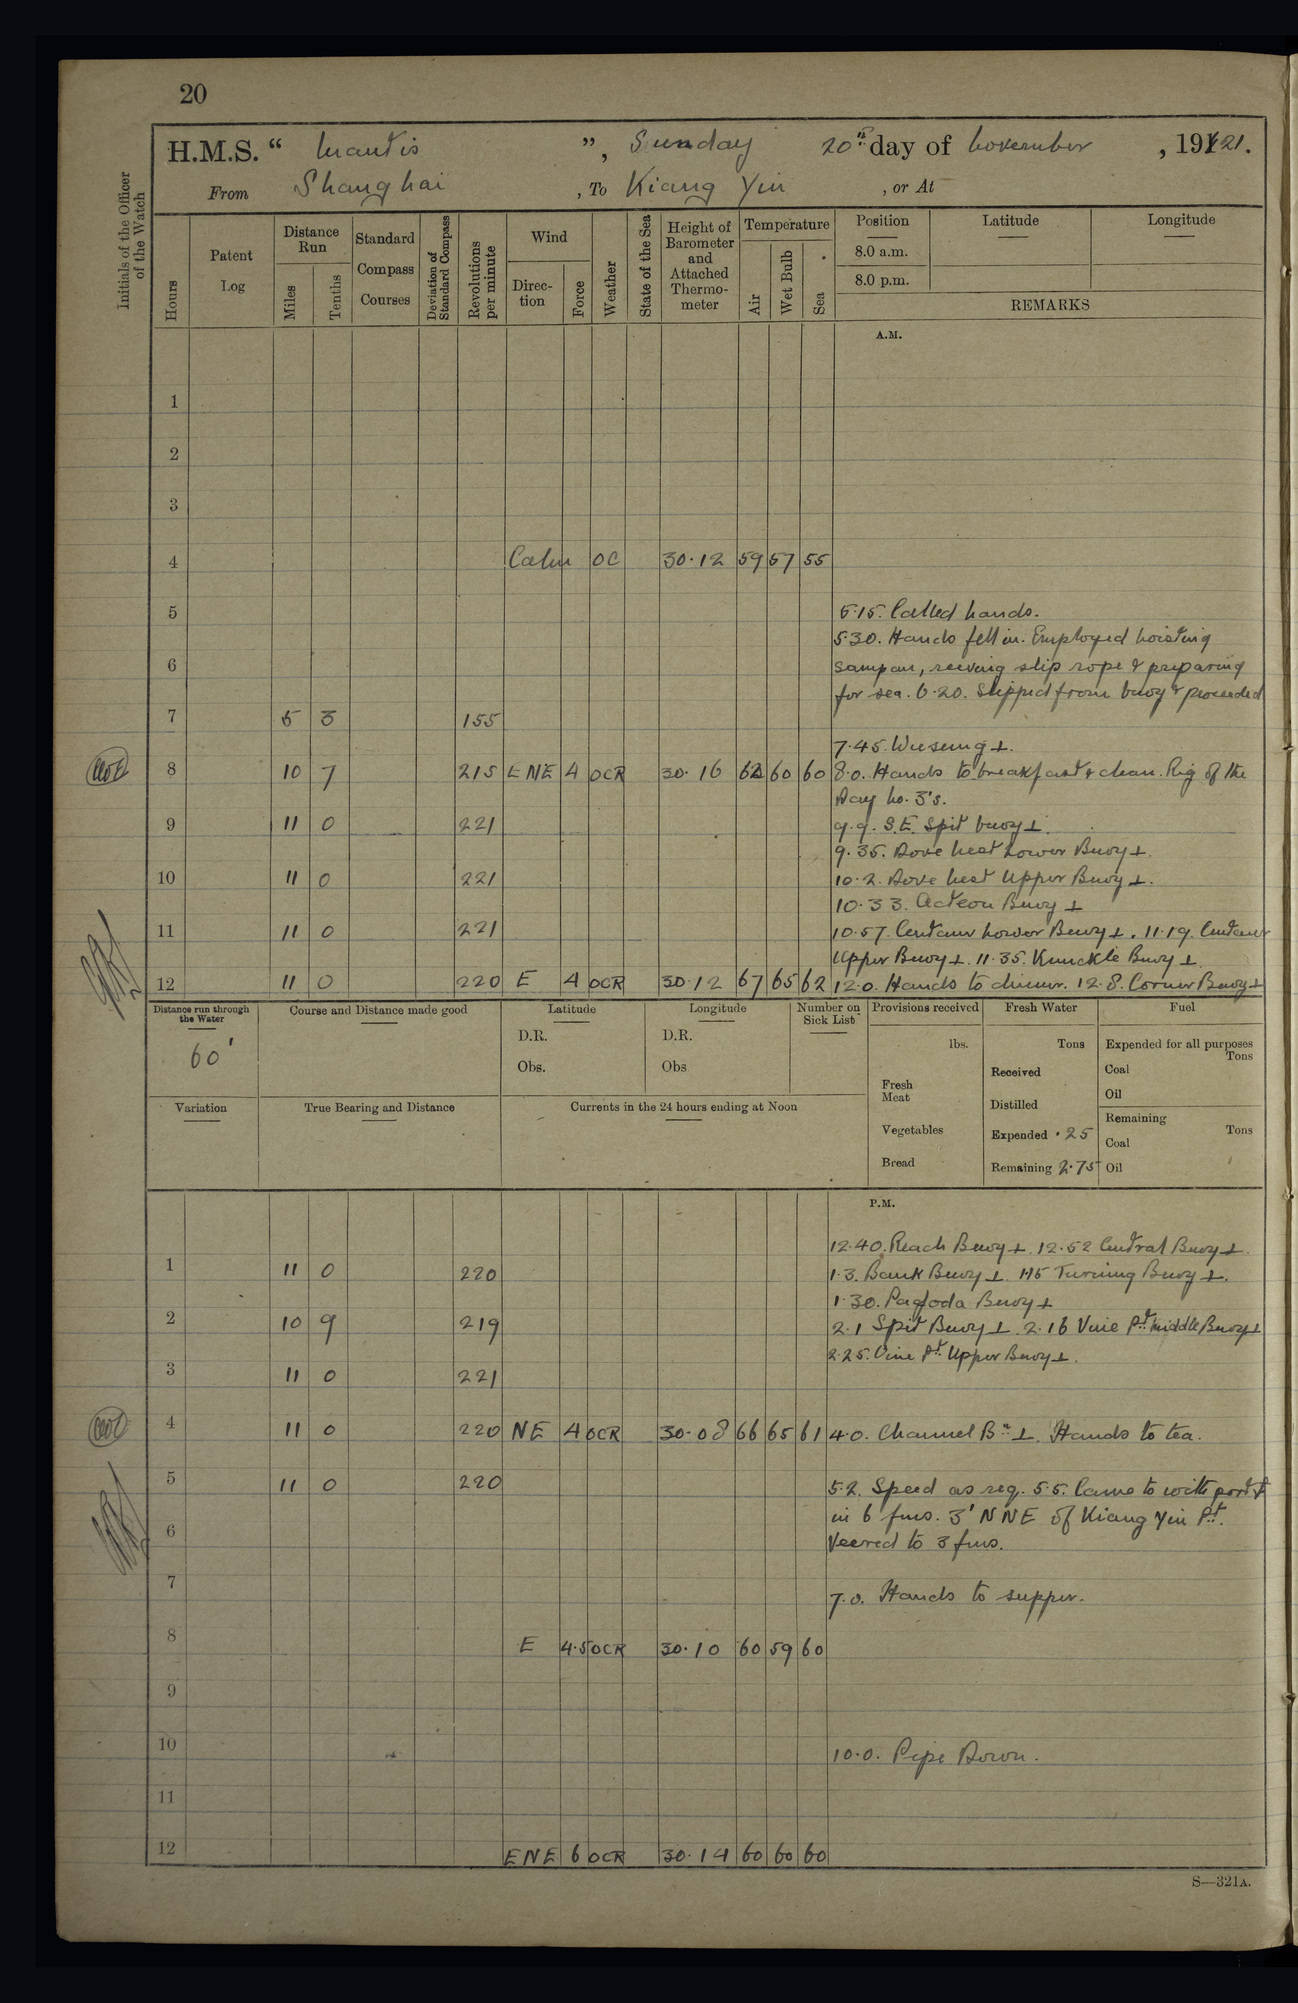 20
H.M.S. “ Mantis ”, Sunday 20th day of November, 1921.
From Shanghai, To Kiang Yin, or At
Initials of the Officer of the Watch
Hours
Patent Log
Distance Run
Miles
Tenths
Standard Compass Courses
Deviation of Standard Compass
Revolutions per minute
Wind
Direction
Force
Weather
State of the Sea
Height of Barometer and Attached Thermometer
Temperature
Air
Wet Bulb
Sea
Position
8.0 a.m.
8.0 p.m.
Latitude
Longitude
REMARKS
A.M.
1
2
3
4 Calm OC 30·12 59 57 55
5 5·15. Called hands.
5·30. Hands fell in. Employed hoisting
6 sampan, reeving slip rope & preparing
for sea. 6·20. Slipped from buoy & proceeded
7 5 3 155
7·45. Wusung ⊥.
8 10 7 215 ENE 4 OCR 30·16 62 60 60 8·0. Hands to breakfast & clean. Rig of the
Day No. 3's.
9 11 0 221 9·9. S.E. Spit buoy ⊥.
9·35. Dove Nest Lower Buoy ⊥.
10 11 0 221 10·2. Dove Nest Upper Buoy ⊥.
10·33. Acteon Buoy ⊥
11 11 0 221 10·57. Centaur Lower Buoy ⊥. 11·19. Centaur
Upper Buoy ⊥. 11·35. Knuckle Buoy ⊥.
12 11 0 220 E 4 OCR 30·12 67 65 62 12·0. Hands to dinner. 12·8. Corner Buoy ⊥
Distance run through the Water
60'
Course and Distance made good
Latitude
D.R.
Obs.
Longitude
D.R.
Obs
Number on Sick List
Provisions received
lbs.
Fresh Meat
Vegetables
Bread
Fresh Water
Tons
Received
Distilled
Expended ·25
Remaining 2·75
Fuel
Expended for all purposes
Tons
Coal
Oil
Remaining
Tons
Coal
Oil
Variation
True Bearing and Distance
Currents in the 24 hours ending at Noon
P.M.
12·40. Reach Buoy ⊥. 12·52 Central Buoy ⊥.
1 11 0 220 1·3. Bank Buoy ⊥. 1·15 Turning Buoy ⊥.
1·30. Pagoda Buoy ⊥
2 10 9 219 2·1 Spit Buoy ⊥. 2·16 Vine Pt. Middle Buoy ⊥
2·25. Vine Pt. Upper Buoy ⊥.
3 11 0 221
4 11 0 220 NE 4 OCR 30·08 66 65 61 4·0. Channel By. ⊥. Hands to tea.
5 11 0 220 5·2. Speed as req. 5·5. Came to with port ⚓
in 6 fms. 3' NNE of Kiang Yin Pt.
6 Veered to 3 fms.
7 7·0. Hands to supper.
8 E 4·5 OCR 30·10 60 59 60
9
10 10·0. Pipe Down.
11
12 ENE 6 OCR 30·14 60 60 60
S—321A.